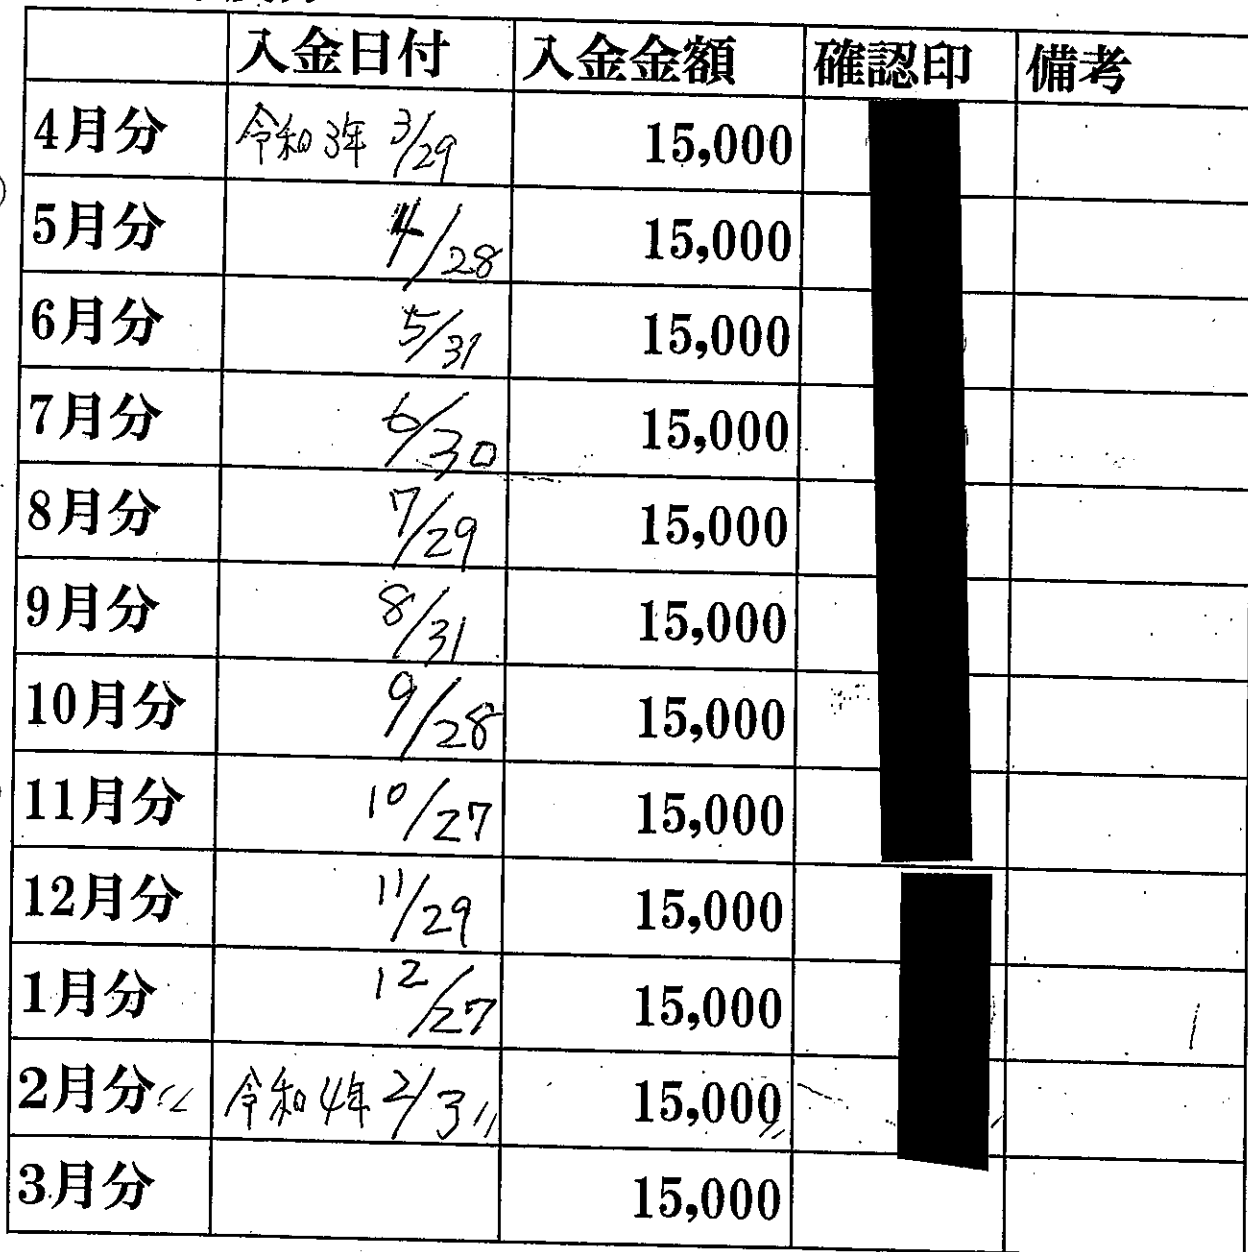 入金日付 入金金額 確認印 備考
4月分 令和3年 3/29 15,000
5月分 4/28 15,000
6月分 5/31 15,000
7月分 6/30 15,000
8月分 7/29 15,000
9月分 8/31 15,000
10月分 9/28 15,000
11月分 10/27 15,000
12月分 11/29 15,000
1月分 12/27 15,000
2月分 令和4年 2/3 15,000
3月分 15,000